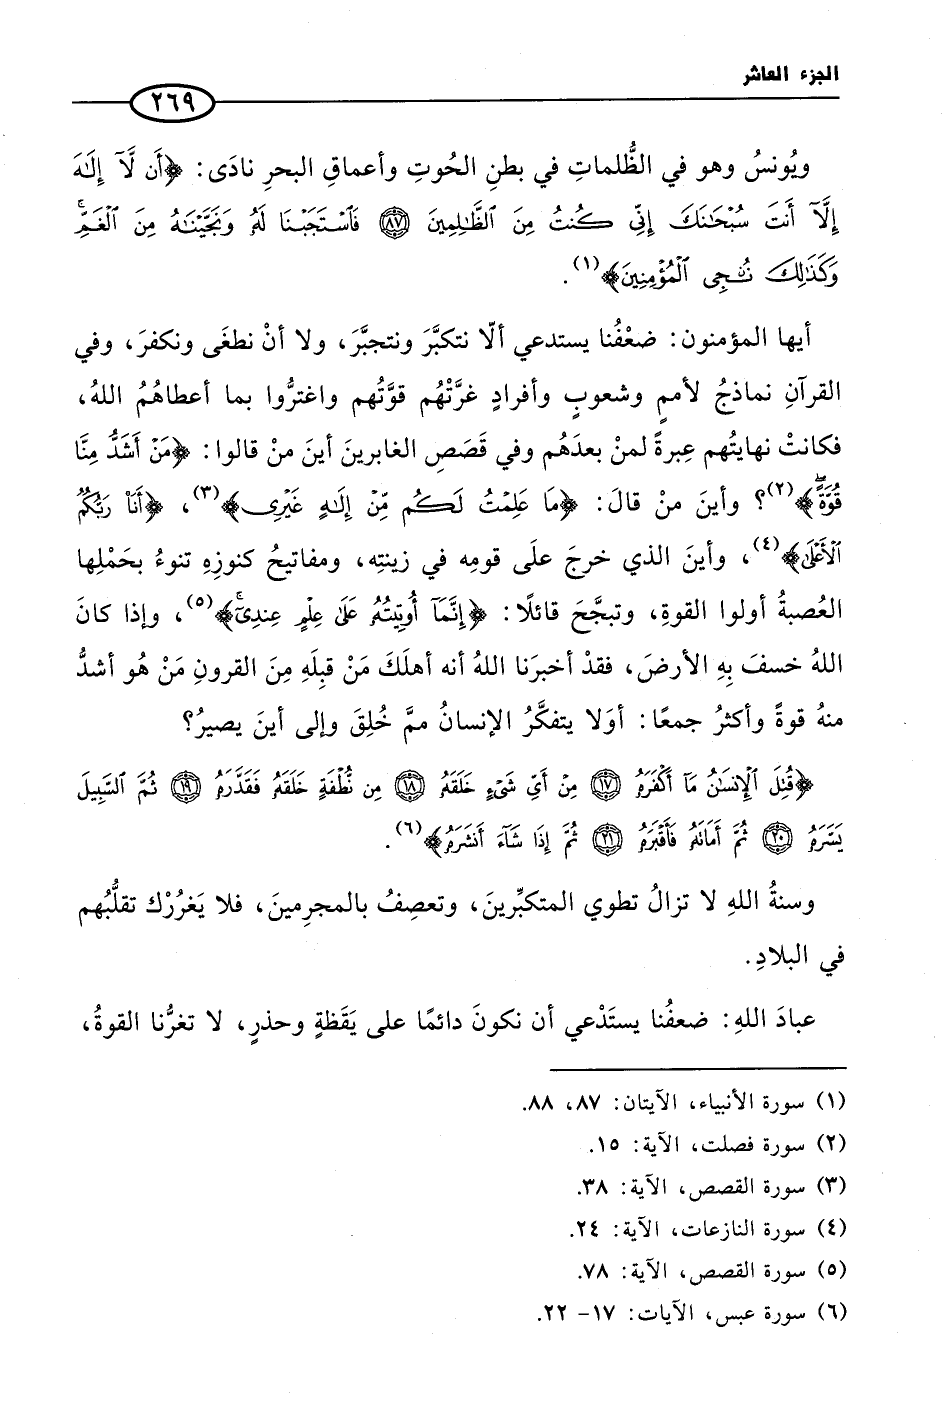 الجزء العاشر
٢٦٩
ويُونسُ وهو في الظُّلماتِ في بطنِ الحُوتِ وأعماقِ البحرِ نادَى: ﴿أَن لَّآ إِلَٰهَ
إِلَّآ أَنتَ سُبْحَٰنَكَ إِنِّي كُنتُ مِنَ ٱلظَّٰلِمِينَ ﴿٨٧﴾ فَٱسْتَجَبْنَا لَهُۥ وَنَجَّيْنَٰهُ مِنَ ٱلْغَمِّ ۚ
وَكَذَٰلِكَ نُۨجِى ٱلْمُؤْمِنِينَ﴾(١).
أيها المؤمنون: ضعْفُنا يستدعي ألّا نتكبَّرَ ونتجبَّرَ، ولا أنْ نطغَى ونكفرَ، وفي
القرآنِ نماذجُ لأممٍ وشعوبٍ وأفرادٍ غرَّتْهُم قوَّتُهم واغترُّوا بما أعطاهُمُ اللهُ،
فكانتْ نهايتُهم عِبرةً لمنْ بعدَهُم وفي قَصَصِ الغابرينَ أينَ منْ قالوا: ﴿مَنْ أَشَدُّ مِنَّا
قُوَّةً ۖ﴾(٢)؟ وأينَ منْ قالَ: ﴿مَا عَلِمْتُ لَكُم مِّنْ إِلَٰهٍ غَيْرِى﴾(٣)، ﴿أَنَا۠ رَبُّكُمُ
ٱلْأَعْلَىٰ﴾(٤)، وأينَ الذي خرجَ علَى قومِه في زينتِه، ومفاتيحُ كنوزِهِ تنوءُ بحَمْلِها
العُصبةُ أولوا القوةِ، وتبجَّحَ قائلًا: ﴿إِنَّمَآ أُوتِيتُهُۥ عَلَىٰ عِلْمٍ عِندِىٓ ۚ﴾(٥)، وإذا كانَ
اللهُ خسفَ بِهِ الأرضَ، فقدْ أخبرَنا اللهُ أنه أهلَكَ مَنْ قبلِه مِنَ القرونِ مَنْ هُو أشدُّ
منهُ قوةً وأكثرُ جمعًا: أوَلا يتفكَّرُ الإنسانُ ممَّ خُلِقَ وإلى أينَ يصيرُ؟
﴿قُتِلَ ٱلْإِنسَٰنُ مَآ أَكْفَرَهُۥ ﴿١٧﴾ مِنْ أَىِّ شَىْءٍ خَلَقَهُۥ ﴿١٨﴾ مِن نُّطْفَةٍ خَلَقَهُۥ فَقَدَّرَهُۥ ﴿١٩﴾ ثُمَّ ٱلسَّبِيلَ
يَسَّرَهُۥ ﴿٢٠﴾ ثُمَّ أَمَاتَهُۥ فَأَقْبَرَهُۥ ﴿٢١﴾ ثُمَّ إِذَا شَآءَ أَنشَرَهُۥ﴾(٦).
وسنةُ اللهِ لا تزالُ تطوي المتكبِّرينَ، وتعصِفُ بالمجرمينَ، فلا يَغرُرْك تقلُّبُهم
في البلادِ.
عبادَ اللهِ: ضعفُنا يستَدْعي أن نكونَ دائمًا على يَقَظةٍ وحذرٍ، لا تغرُّنا القوةُ،
(١) سورة الأنبياء، الآيتان: ٨٧، ٨٨.
(٢) سورة فصلت، الآية: ١٥.
(٣) سورة القصص، الآية: ٣٨.
(٤) سورة النازعات، الآية: ٢٤.
(٥) سورة القصص، الآية: ٧٨.
(٦) سورة عبس، الآيات: ١٧- ٢٢.